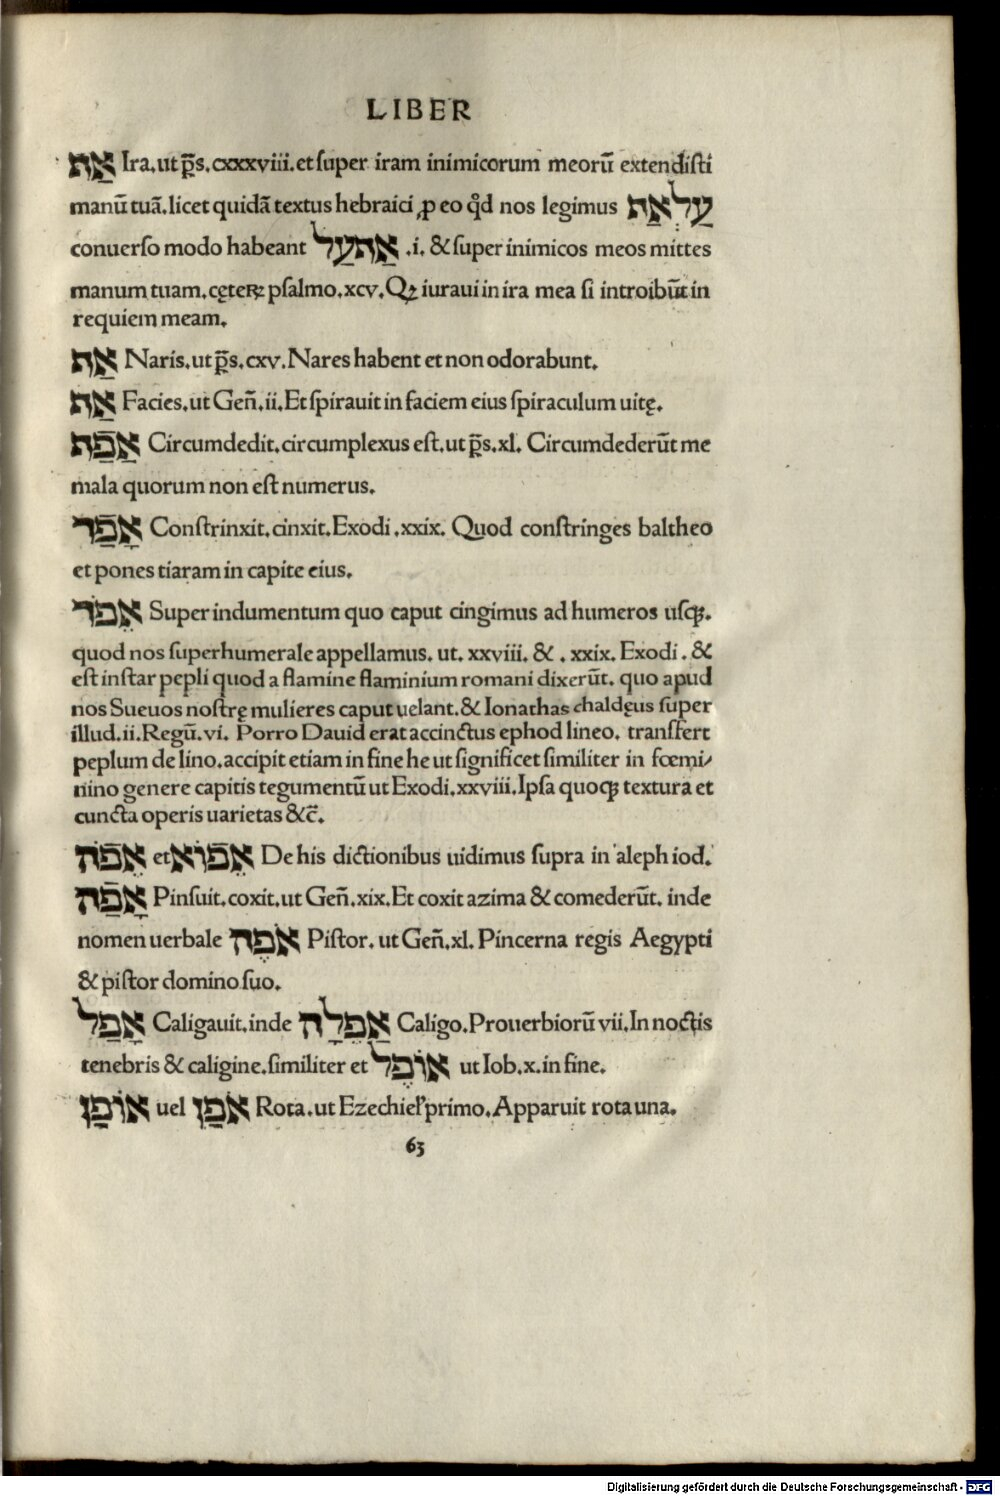 LIBER
אַף Ira.ut p̄s.cxxxviii.et super iram inimicorum meorū extendisti
manū tuā.licet quidā textus hebraici ꝓ eo qđ nos legimus עַל אַף
conuerso modo habeant אַף עַל .i. & super inimicos meos mittes
manum tuam.cęteꝝ psalmo.xcv.Qꝫ iuraui in ira mea si introibūt in
requiem meam.
אַף Naris.ut p̄s.cxv.Nares habent et non odorabunt.
אַף Facies.ut Geñ.ii.Et spirauit in faciem eius spiraculum uitę.
אַפַּף Circumdedit.circumplexus est.ut p̄s.xl. Circumdederūt me
mala quorum non est numerus.
אָפַּד Constrinxit.cinxit.Exodi.xxix. Quod constringes baltheo
et pones tiaram in capite eius.
אֵפֹד Super indumentum quo caput cingimus ad humeros usqꝫ.
quod nos superhumerale appellamus. ut. xxviii. & . xxix. Exodi . &
est instar pepli quod a flamine flaminium romani dixerūt. quo apud
nos Sueuos nostrę mulieres caput uelant.& Ionathas chaldęus super
illud.ii.Regū.vi. Porro Dauid erat accinctus ephod lineo. transfert
peplum de lino.accipit etiam in fine he ut significet similiter in fœmi⸗
nino genere capitis tegumentū ut Exodi.xxviii.Ipsa quoqꝫ textura et
cuncta operis uarietas &c̄.
אֵפֹּה et אֵפוֹּא De his dictionibus uidimus supra in aleph iod.
אָפַּה Pinsuit.coxit.ut Geñ.xix.Et coxit azima & comederūt. inde
nomen uerbale אֹפֶה Pistor. ut Geñ.xl. Pincerna regis Aegypti
& pistor domino suo.
אָפַּל Caligauit.inde אֲפֵלָה Caligo.Prouerbiorū vii.In noctis
tenebris & caligine.similiter et אוֹפֶל ut Iob.x.in fine.
אוֹפָן uel אֹפָן Rota.ut Ezechiel' primo.Apparuit rota una.
63
Digitalisierung gefördert durch die Deutsche Forschungsgemeinschaft - DFG